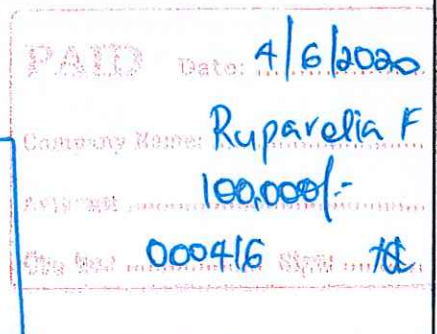 PAID Date: 4/6/2020
Company Name: Ruparelia F
Amount 100,000/-
Chq No: 000416 Sign